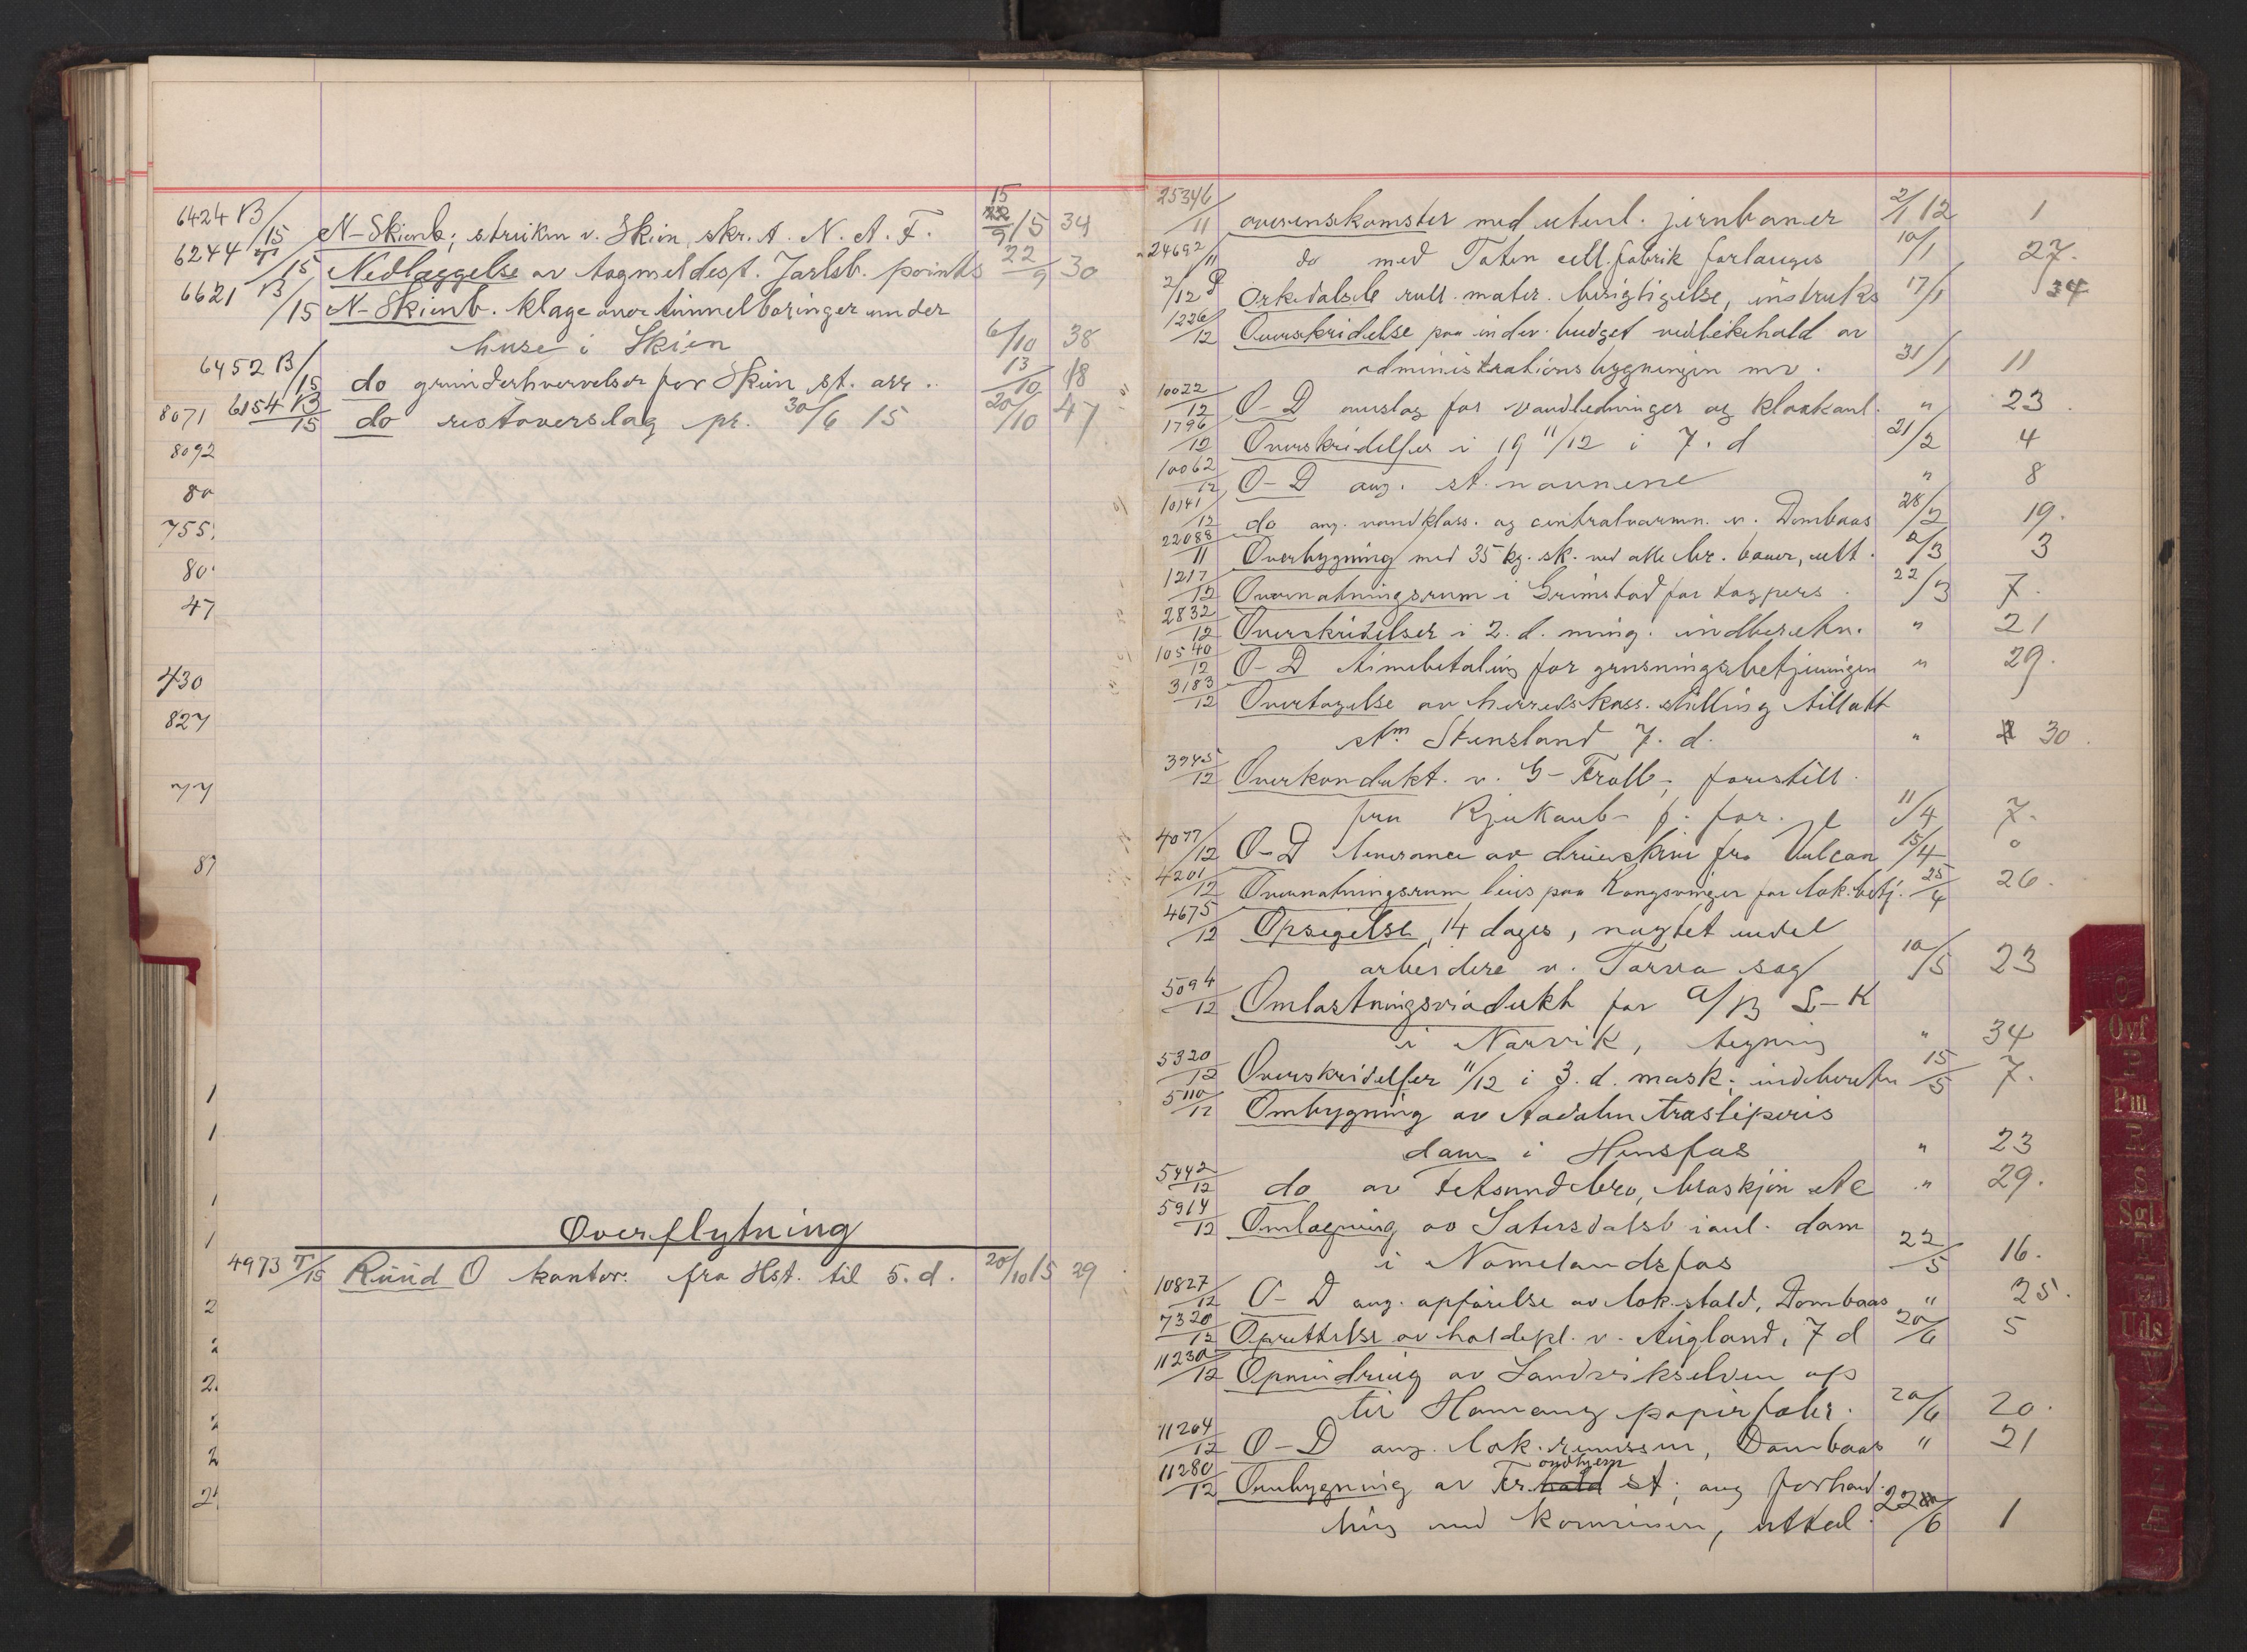 6424 B/15 N-Skienb; streiken v. Skien, skr. A. N. A. F. 15/9 15 34
6244 T/15 Nedlæggelse av togmeldest. Jarlsb. points 22/9 30
6621 B/15 N-Skienb. klage over tunnelboringer under
huse i Skien 6/10 38
6452 B/15 do grunderhvervelser for Skien st. arr. 13/10 18
8071 6154 B/15 do restoverslag pr. 30/6 15 20/10 47
8092
80
755
80
47
430
827
77
87
1
1
1
1
Overflytning
4973 T/15 Ruud O kontor. fra Hst. til 5. d. 20/10 15 29
2
2
2
2
2
2
25346/11 overenskomster med utenl. jernbaner 2/1 12 1
24692/11 do med Toten cell. fabrik forlanges 10/1 27.
2/12 P Orkedalsb. rull. mater. besigtigelse, instruks 17/1 34
1226/12 Overskridelse paa indev. budget vedlikehold av
administrationsbygningen mv. 31/1 11
10022/12 O-D overslag for vandledninger og kloakanl. " 23
1796/12 Overskridelser i 19 11/12 i 7. d 21/2 4
10062/12 O-D ang. st. navnene " 8
10141/12 do ang. vandklass. og centralvarmn. v. Dombaas 28/2 19.
22088/11 Overbygning med 35 kg. sk. ved alle br. baner, utt. 2/3 3
1217/12 Overnatningsrum i Grimstad for togpers. 22/3 7.
2832/12 Overskridelser i 2. d. ming. indberetn. " 21
10540/12 O-D timebetaling for grusningsbetjeningen " 29.
3183/12 Overtagelse av herredskass. stilling tillatt
stm. Stensland 7. d. " 30.
3945/12 Overkondukt. v. G-Trollb; forestill.
fra Rjukanb- f. for. 11/4 7.
4077/12 O-D leverance av dreieskive fra Vulcan 15/4 0
4201/12 Overnatningsrum leies paa Kongsvinger for lok. betj. 25/4 26.
4675/12 Opsigelse, 14 dages, negtet endel
arbeidere v. sag 10/5 23
5094/12 Omlastningsviadukt for A/B L-K
i Narvik, tegning " 34
5320/12 Overskridelser 11/12 i 3. d. mask; indberetn 15/5 7.
5110/12 Ombygning av Aadalen træsliperis
dam i Hensfos " 23
5442/12 do av Fetsund bro, beskjen etc " 29.
5914/12 Omlægning av Sætersdalsb i anl. dam
i Nomelandsfos 22/5 16.
10827/12 O-D ang. opførelse av lok. stald, Dombaas " 25.
7320/12 Oprettelse av holdepl. v. Augland, 7 d 20/6 5
11230/12 Opmudring av Sandvikselven op
til Hamang papirfabr. 20/6 20.
11264/12 O-D ang. lok. remissen, Dombaas " 21
11280/12 Ombygning av Trondhjem st; ang forhand-
ling med kommunen, uttal. 22/6 1
Ovf
Pm
R
S
Sgl
T
Uds
Æ